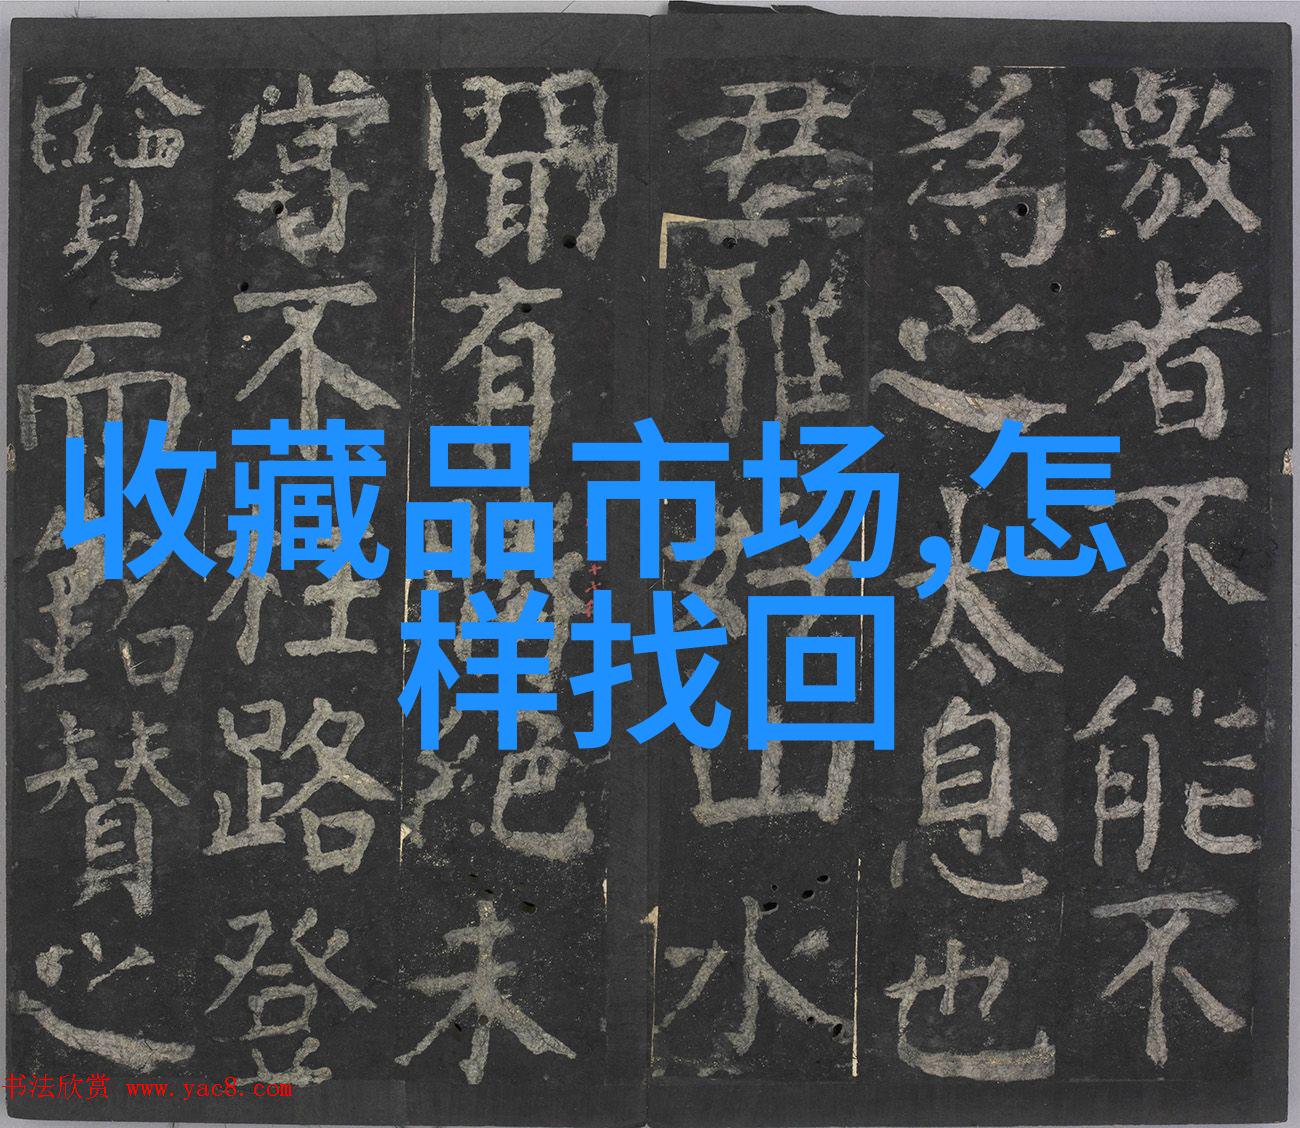 激者不能不
為之太息也
君雅好山水
聞有勝絕未
嘗不枉路登
覽而銘贊之
收藏品市场,怎
样找回
书法欣赏 www.yac8.com